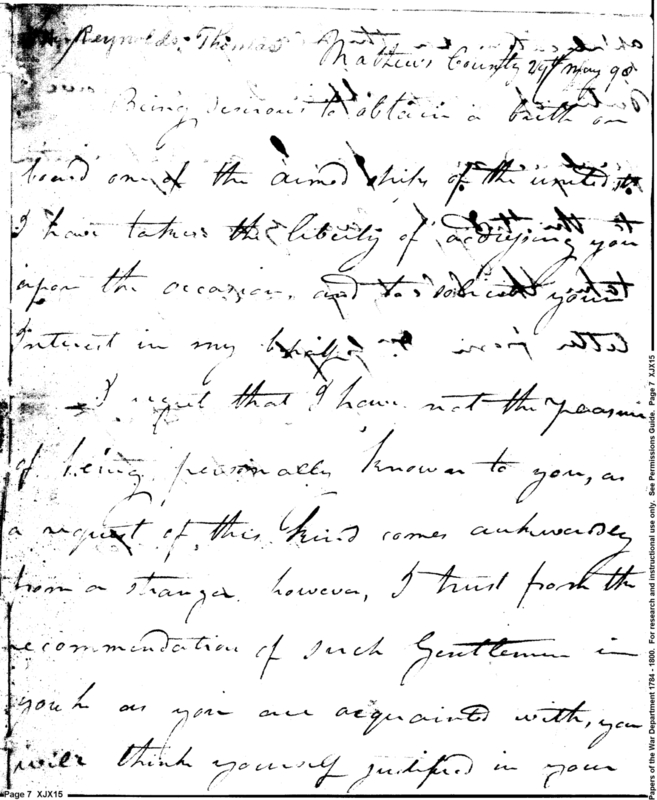 Reynolds, Thomas
Mathews County 29th May 98
Being desirous to obtain a birth on
board one of the aimed ships of the united
I have taken the liberty of addressing you
upon the occasion, and to solicit your
Interest in my behalf
I regret that I have not the pleasure
of being personally known to you, as
a request of this kind comes aukwardly
from a stranger. however, I trust from the
recommendation of such Gentlemen in
as you are acquainted with, you
will think yourself justified in your
Page 7 XJX15
Papers of the War Department 1784 - 1800. For research and instructional use only. See Permissions Guide. Page 7 XJX15